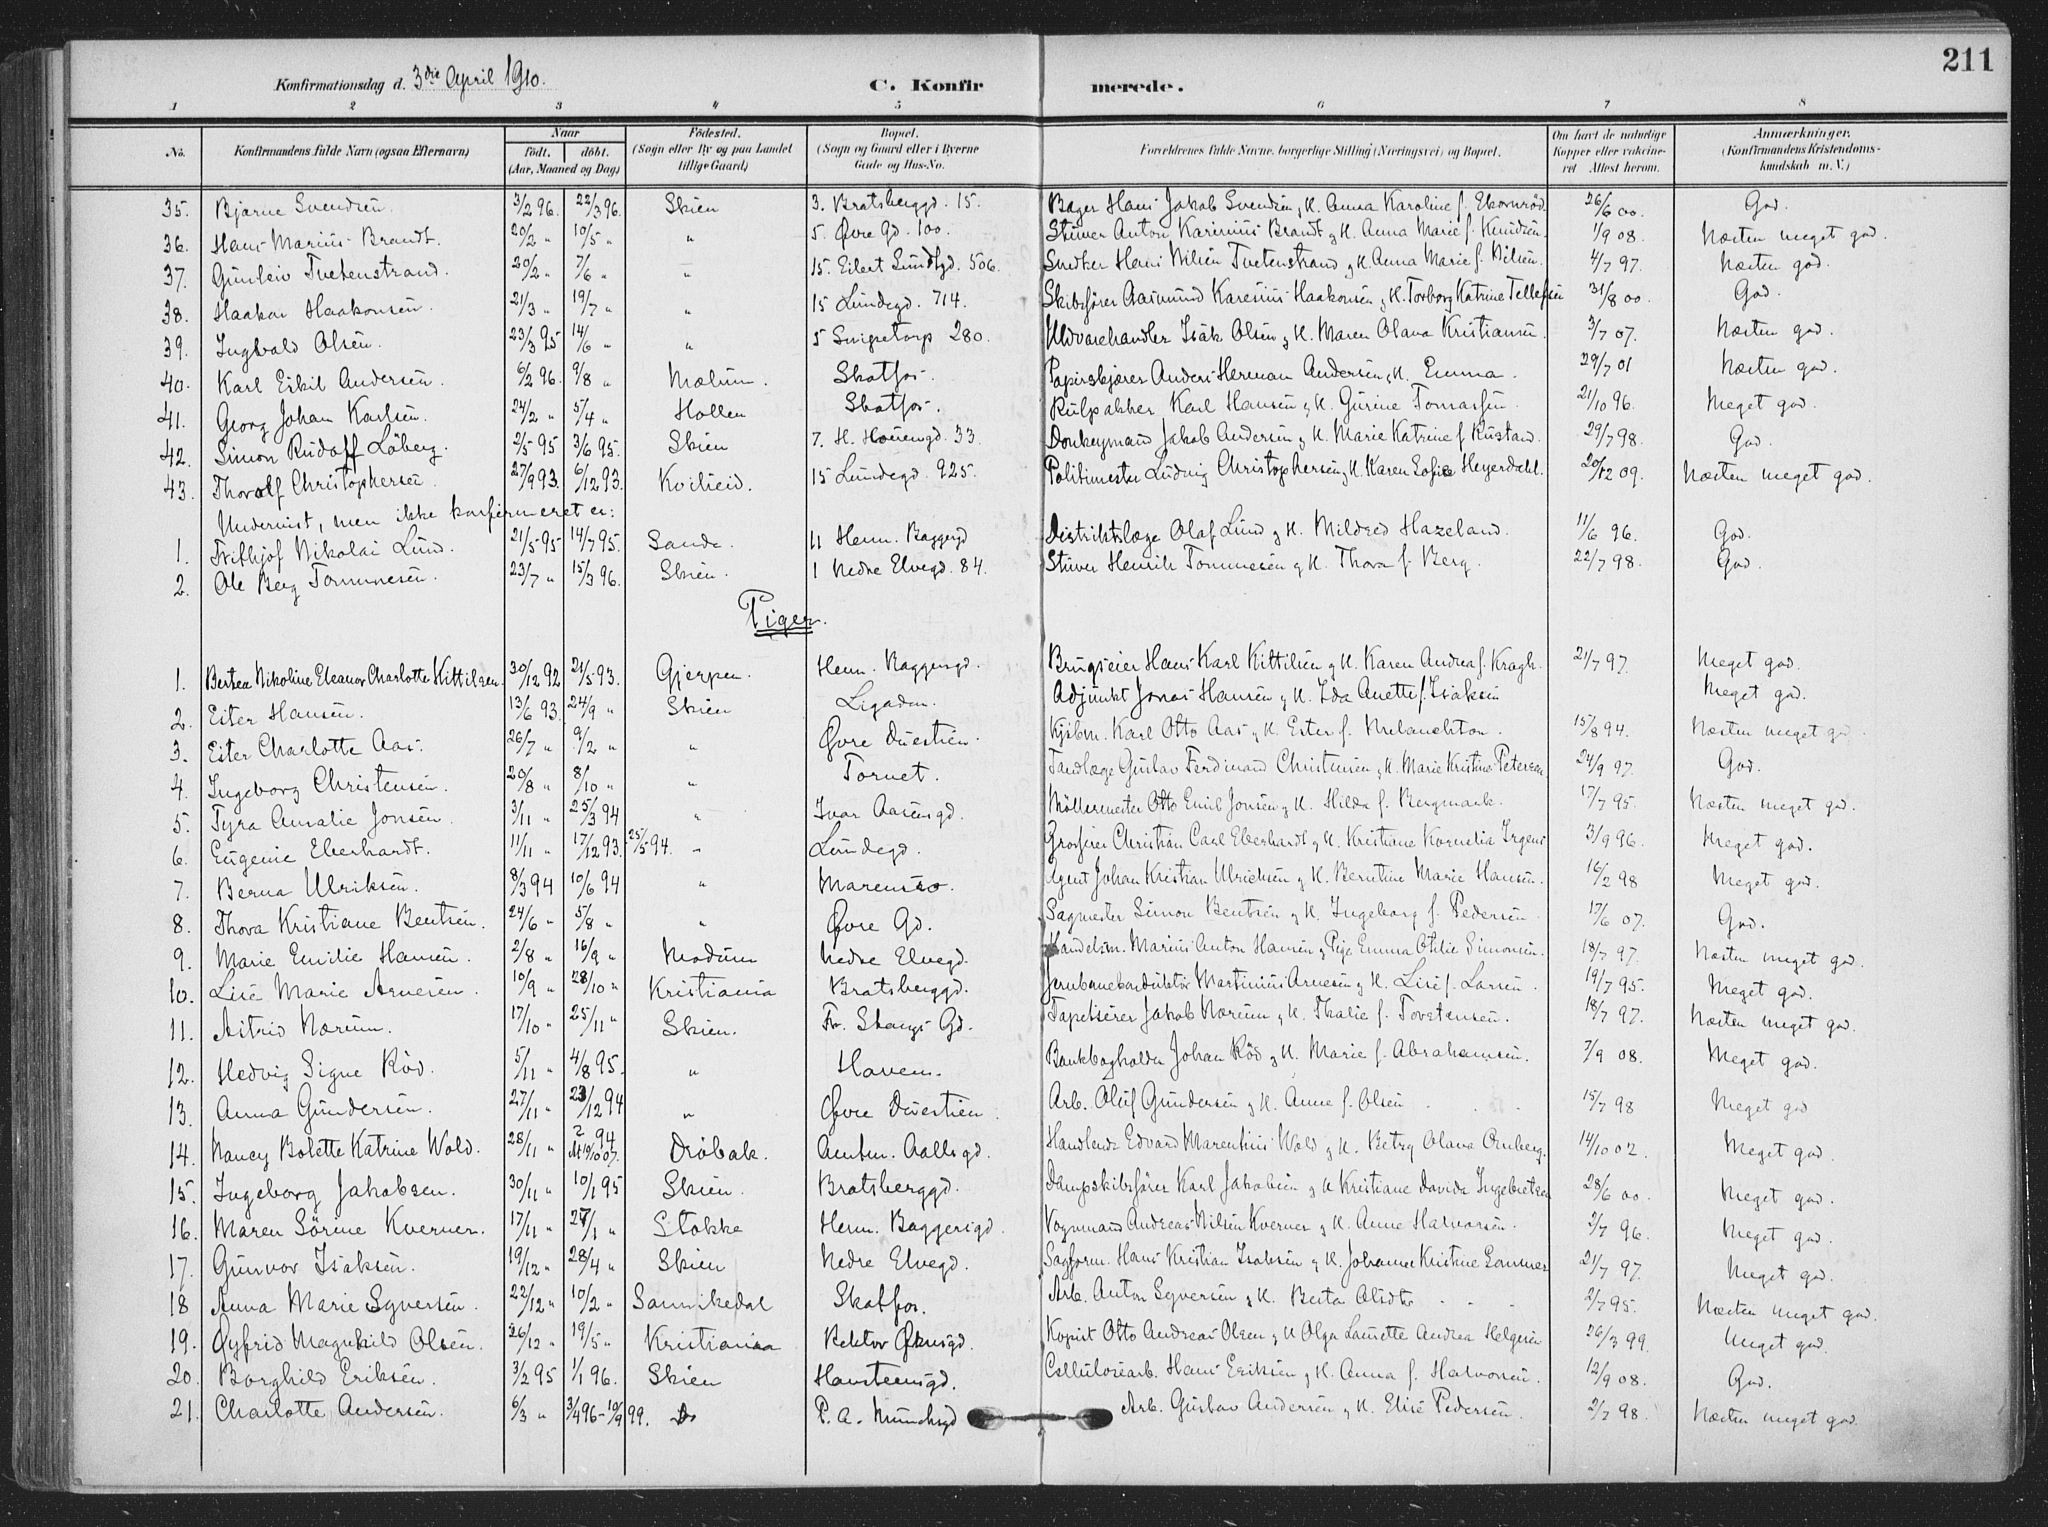 211
Konfirmationsdag d. 3die April 1910. C. Konfirmerede.
1 2 3 4 5 6 7 8
No. Konfirmandens fulde Navn (ogsaa Efternavn) Naar födt. döbt. (Aar, Maaned og Dag) Födested. (Sogn eller By og paa Landet tillige Gaard) Bopæl. (Sogn og Gaard eller i Byerne Gade og Hus-No. Forældrenes fulde Navne, borgerlige Stilling (Næringsvei) og Bopæl. Om havt de naturlige Kopper eller vaccineret. Attest herom. Anmærkninger. (Konfirmandens Kristendomskundskab m. V.)
35. Bjarne Svendsen. 3/2 96. 22/3 96. Skien 3. Bratsberggd. 15. Bager Hans Jakob Svendsen, H. Anna Karoline f. Ekornröd. 26/6 00. God.
36. Hans Marius Brandt. 20/2 " 10/5 " " 5. Øvre Gd. 100. Stuver Anton Karinius Brandt og H. Anna Marie f. Knudsen. 1/9 08. Næsten meget god.
37. Gunleiv Tvetenstrand. 20/2 " 7/6 " " 15. Eilert Sundtgd. 506. Snedker Hans Nilsen Tvetenstrand og H. Anna Marie f. Nilsen. 4/7 97. Næsten god.
38. Haakon Haakonsen. 21/3 " 19/7 " " 15 Lundegd. 714. Skibsfører Aasmund Karenius Haakonsen og H. Torborg Katrine Tellefsen 31/8 00. God.
39. Ingvald Olsen. 23/3 95 14/6 " " 5 Snipetorp 280. Uldvarehandler Isak Olsen og H. Maren Olava Kristiansen. 3/7 07. Næsten god.
40. Karl Eskil Andersen. 6/2 96. 9/8 " Mælum. Skotfos. Papirskjærer Anders Herman Andersen, H. Emma. 29/7 01 Næsten god.
41. Georg Johan Karlsen. 24/2 " 5/4 " Hollen Skotfos. Rulpakker Karl Hansen og H. Gurine Tomassen. 21/10 96. Meget god.
42. Simon Rudolf Löberg. 2/5 95 3/6 95. Skien 7. H. Houengd. 33. Donkeymand Jakob Andersen og H. Marie Katrine f. Rustand. 29/7 98. God.
43. Thorolf Christophersen. 27/9 93. 6/12 93. Kviteseid. 15 Lundegd. 925. Politimester Ludvig Christophersen, H. Karen Sofie Heyerdahl. 20/12 09. Næsten meget god.
Undervist, men ikke konfirmeret er:
1. Frithjof Nikolai Lund. 21/5 95 14/7 95. Sande. 11 Henr. Baggesgd Distriktslæge Olaf Lund og H. Mildred Hazeland. 11/6 96. God.
2. Ole Berg Tommesen. 23/7 " 15/3 96. Skien. 1 Nedre Elvegd. 84. Stuver Henrik Tommesen og H. Thora f. Berg. 22/7 98. God.
Piger.
1. Bertea Nikoline Eleanor Charlotte Kittilsen. 30/12 92 21/5 93. Gjerpen. Henr. Baggesgd. Brugseier Hans Karl Kittilsen og H. Karen Andrea f. Kragh. 21/7 97. Meget god.
2. Ester Hansen. 13/6 93. 24/9 " Skien Ligaden. Adjunkt Jonas Hansen og H. Ida Anette f. Isaksen Meget god.
3. Ester Charlotte Aas. 26/7 " 9/2 " " Øvre Duestien. Kjöbm. Karl Otto Aas og H. Ester f. Melanchton. 15/8 94. Næsten meget god.
4. Ingeborg Christensen. 20/8 " 8/10 " " Torvet. Tandlæge Gustav Ferdinand Christensen og H. Marie Kristine Petersen 24/9 97. God.
5. Tyra Amalie Jonsen. 3/11 " 25/3 94 " Ivar Aasensgd. Möllermester Otto Emil Jonsen og H. Hilda f. Bergmark. 17/7 95. Næsten meget god.
6. Eugenie Eberhardt. 11/11 " 17/12 93. 25/5 94. " Lundegd. Grosserer Christian Carl Eberhardt og H. Kristiane Kornelia Irgens 3/9 96. Meget god.
7. Berna Ulriksen. 8/3 94 10/6 94 " Marensro. Agent Johan Kristian Ulrichsen og H. Berntine Marie Hansen. 16/2 98 Meget god.
8. Thora Kristiane Bentsen. 24/6 " 5/8 " " Øvre Gd. Sagmester Simon Bentsen og H. Ingeborg f. Pedersen 17/6 07. God.
9. Marie Emilie Hansen. 2/8 " 16/9 " Modum Nedre Elvegd. Handelsm. Marius Anton Hansen og Pige Emma Otilie Simonsen. 18/7 97. Næsten meget god.
10. Lise Marie Arnesen. 10/9 " 28/10 " Kristiania Bratsberggd. Jernbanekonduktör Martinius Arnesen og H. Lise f. Larsen 19/7 95. Meget god.
11. Astrid Nærum. 17/10 " 25/11 " Skien. Fr. Stangs Gd. Tapetserer Jakob Nærum og H. Thalie f. Torstensen. 18/7 97. Næsten meget god.
12. Hedvig Signe Röd. 5/11 " 4/8 95. " Haven. Bankbogholder Johan Röd og H. Marie f. Abrahamsen. 7/9 08. Meget god.
13. Anna Gundersen. 27/11 " 23/12 94 " Øvre Duestien Arb. Oluf Gundersen og H. Anne f. Olsen 15/7 98 Meget god
14. Nancy Bolette Katrine Wold. 28/11 " Dröbak. Amtm. Aallsgd. Handlende Edvard Marentius Wold og H. Betzy Olava Omberg. 14/10 02. Meget god.
15. Ingeborg Jakobsen. 30/11 " 10/1 95 Skien. Bratsberggd. Dampskibsförer Karl Jakobsen og H Kristiane Davida Ingebretsen 28/6 00. Meget god.
16. Maren Sörine Kverner. 17/11 " 27/1 " Stokke Henr. Baggesgd. Vognmand Andreas Nilsen Kverner og H. Anne Halvorsen. 2/7 96. Meget god.
17. Gunvor Isaksen. 19/12 " 28/4 " Skien Nedre Elvegd. Sagform. Hans Kristian Isaksen og H. Johanne Kristine Sommer 21/7 97. Meget god.
18 Anna Marie Syversen. 22/12 " 10/2 " Sannikedal Skotfos. Arb. Anton Syversen og H. Berta Alette 2/7 95. Næsten meget god.
19. Øyfrid Magnhild Olsen. 26/12 " 19/5 " Kristiania Rektor Ørnsgd. Kopist Otto Andreas Olsen og H Olga Laurette Andrea Helgesen 26/3 99. Meget god.
20. Borghild Eriksen. 3/2 95 1/1 96. Skien Hansteensgd. Cellulosearb. Hans Eriksen og H. Anna f. Halvorsen. 12/9 08. God.
21. Charlotte Andersen. 6/3 " 3/4 96 - 10/9 99. Do P. A. Munchsgd Arb. Gustav Andersen og H. Elise Pedersen. 2/7 98. Næsten meget god.